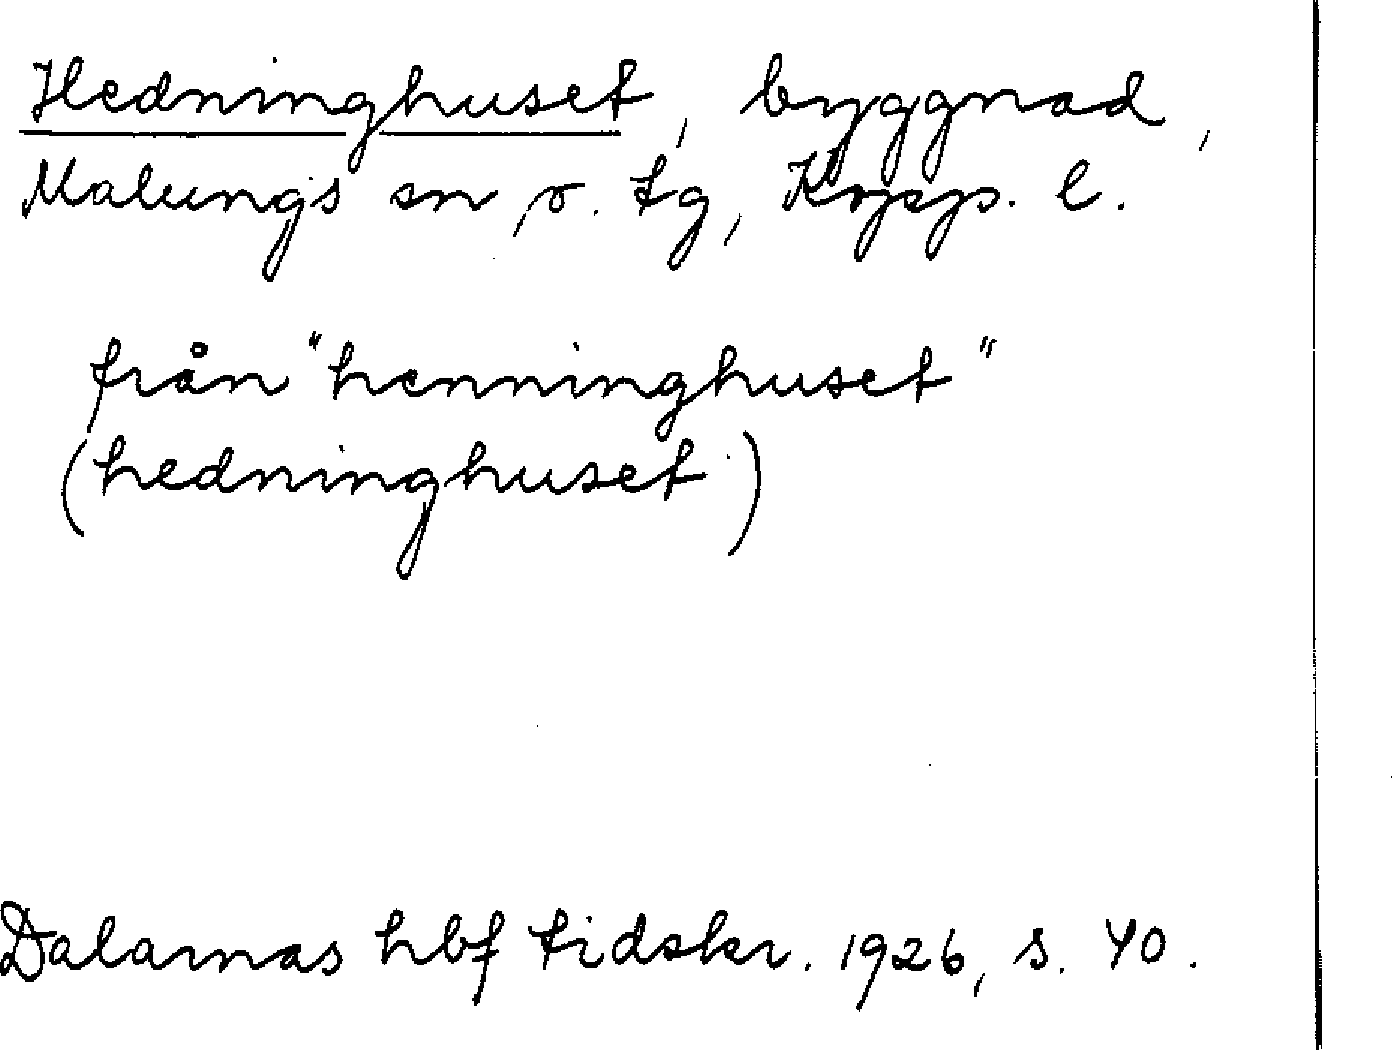 Hedninghuset, byggnad,
Malungs sn, o. tg, Kopp. l.
från "henninghuset"
(hedninghuset)
Dalarnas hbf tidskr. 1926, s. 40.